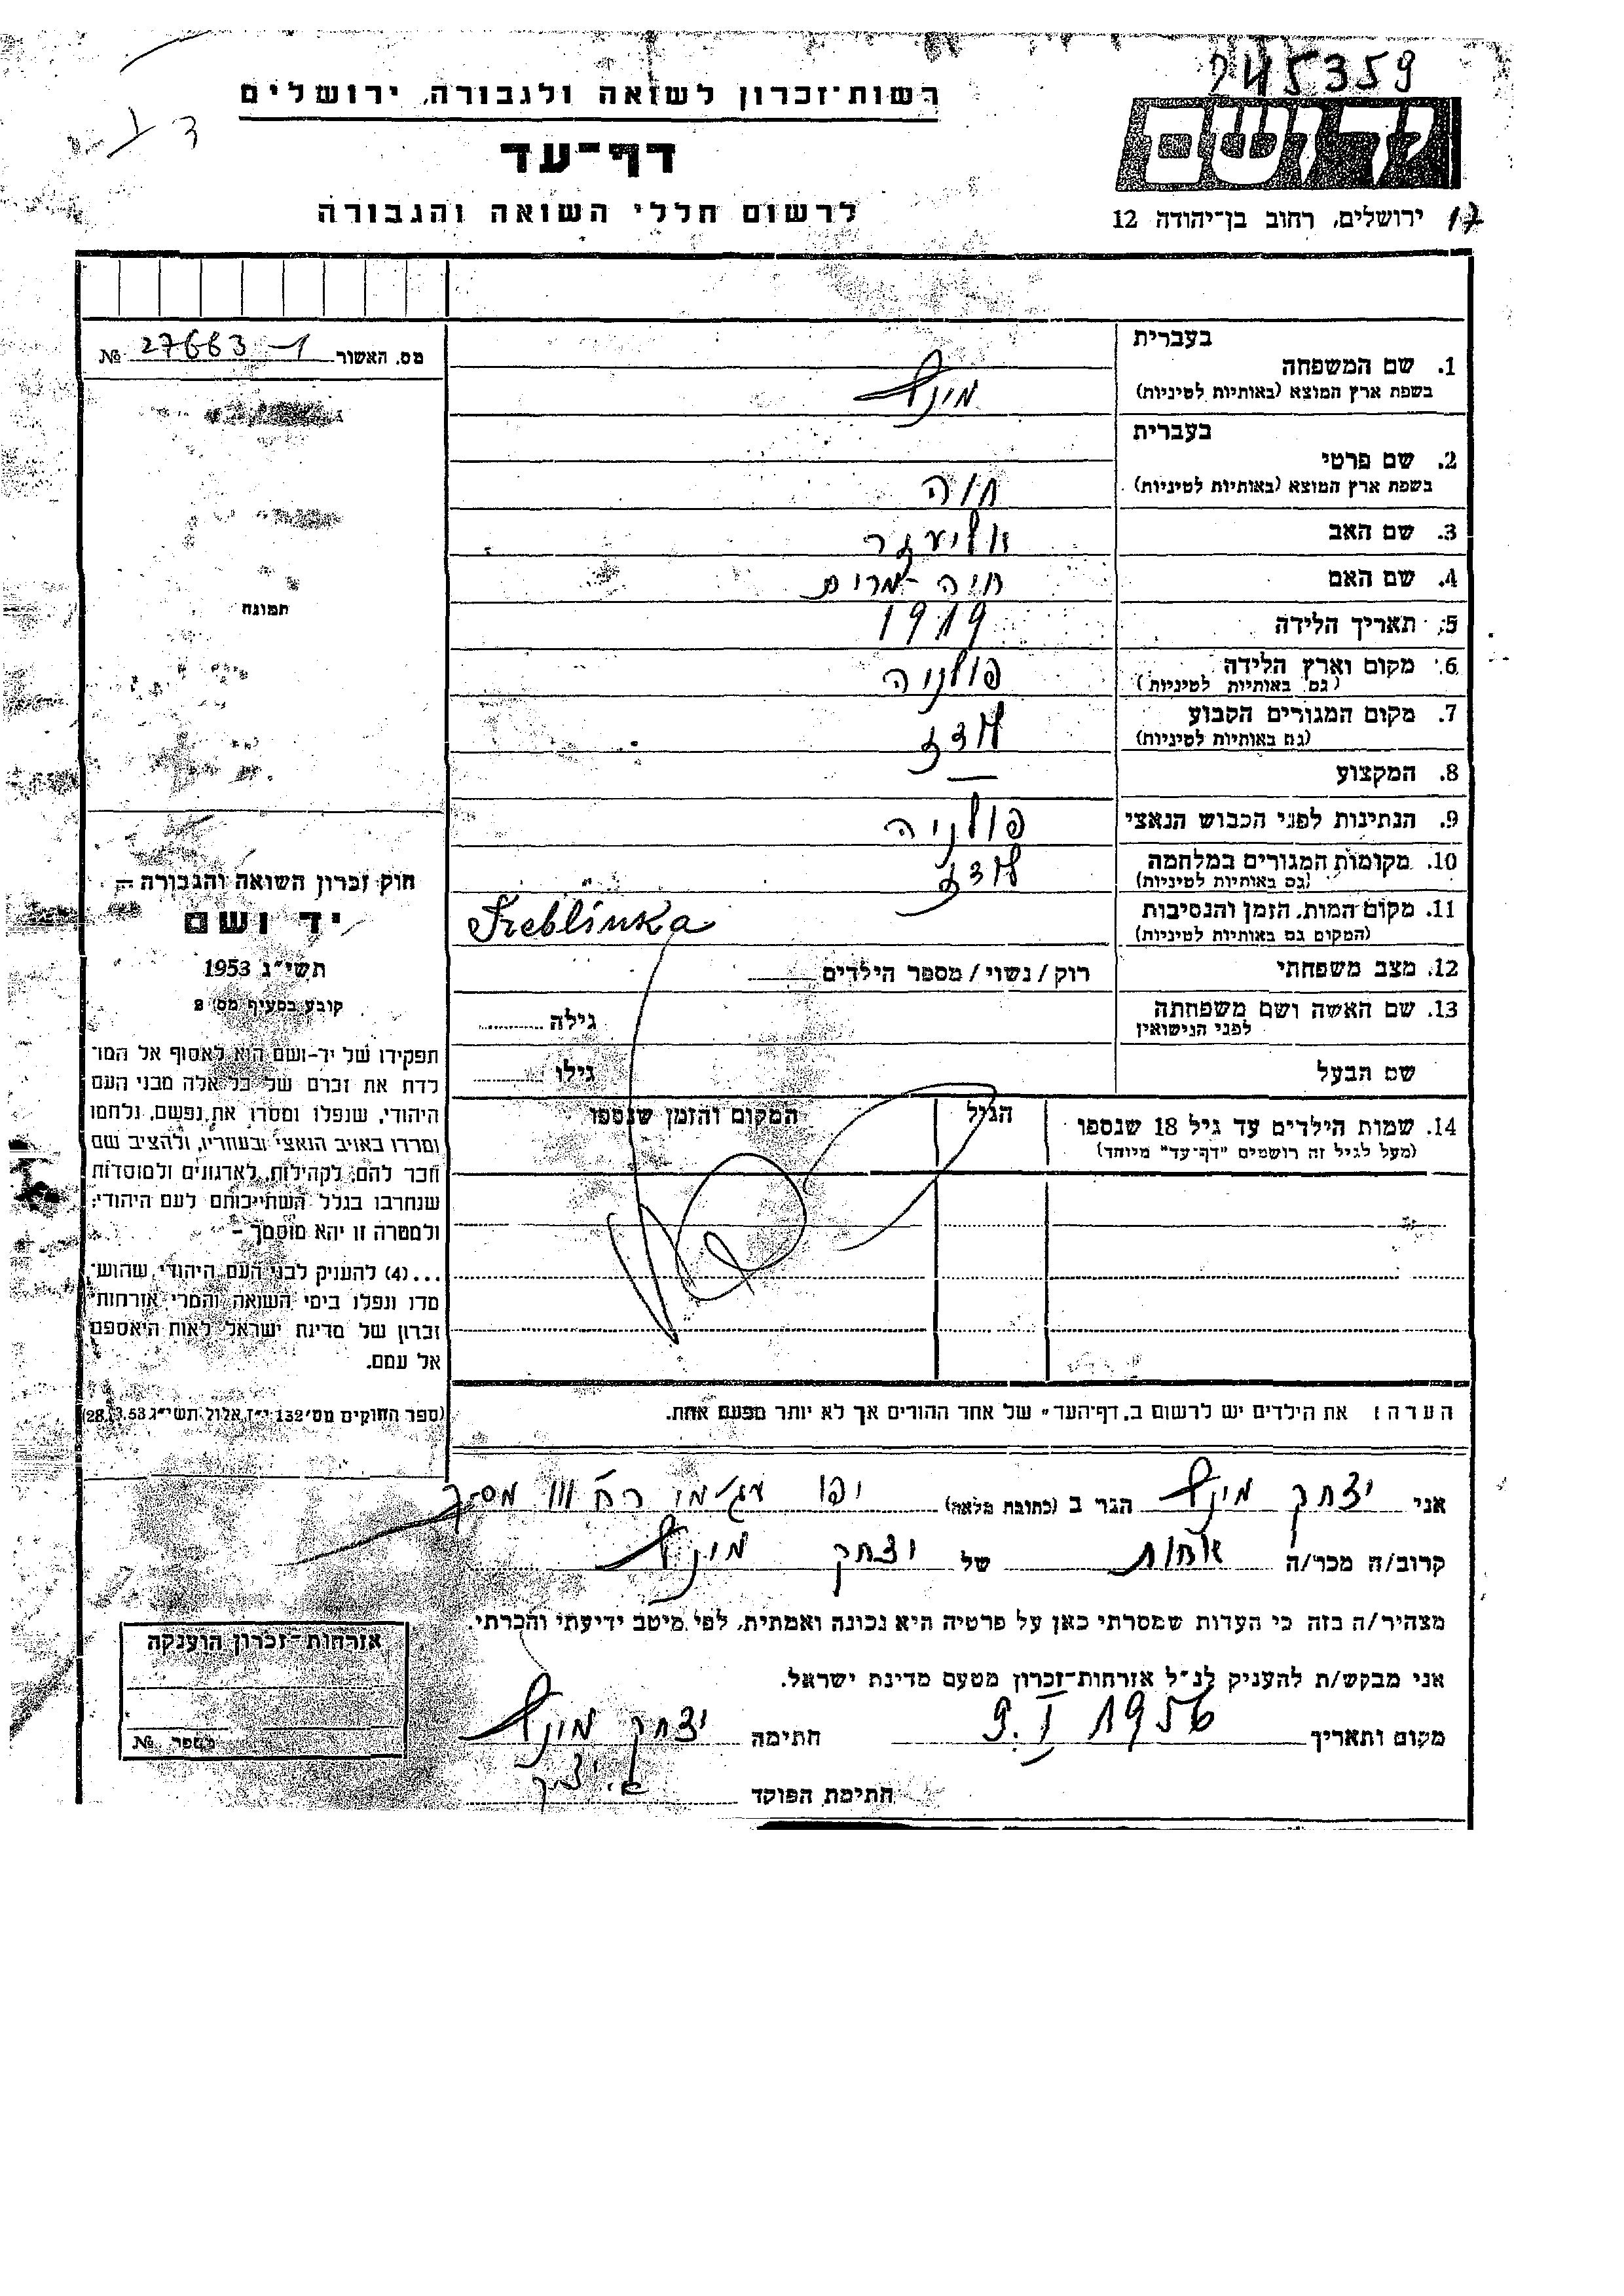 245359
רשות-זכרון לשואה ולגבורה, ירושלים
דף-עד
לרשום חללי השואה והגבורה
ידושם
ירושלים, רחוב בן-יהודה 12
17
מס. האשור 27663-1 №
בעברית
1. שם המשפחה
בשפת ארץ המוצא (באותיות לטיניות)
בעברית
2. שם פרטי
בשפת ארץ המוצא (באותיות לטיניות) חוה
3. שם האב אליעזר
4. שם האם חיה-מרים
5. תאריך הלידה 1919
6. מקום וארץ הלידה פולניה
(גם באותיות לטיניות)
7. מקום המגורים הקבוע לודז
(גם באותיות לטיניות)
8. המקצוע —
9. הנתינות לפני הכבוש הנאצי פולניה
10. מקומות המגורים במלחמה לודז
(גם באותיות לטיניות)
11. מקום המות, הזמן והנסיבות Treblinka
(המקום גם באותיות לטיניות)
12. מצב משפחתי רוק / נשוי / מספר הילדים
13. שם האשה ושם משפחתה גילה
לפני הנישואין
שם הבעל גילו
14. שמות הילדים עד גיל 18 שנספו הגיל המקום והזמן שנספו
(מעל לגיל זה רושמים "דף-עד" מיוחד)
תמונה
חוק זכרון השואה והגבורה —
יד ושם
תשי"ג 1953
קובע בסעיף מס' 2
תפקידו של יד-ושם הוא לאסוף אל המו־
לדת את זכרם של כל אלה מבני העם
היהודי, שנפלו ומסרו את נפשם, נלחמו
ומרדו באויב הנאצי ובעוזריו, ולהציב שם
וזכר להם, לקהילות, לארגונים ולמוסדות
שנחרבו בגלל השתייכותם לעם היהודי;
ולמטרה זו יהא מוסמך —
...(4) להעניק לבני העם היהודי שהוש־
מדו ונפלו בימי השואה והמרי אזרחות־
זכרון של מדינת ישראל לאות היאספם
אל עמם.
(ספר החוקים מס' 132 י"ז אלול תשי"ג 28.8.53)
הערה: את הילדים יש לרשום ב"דף-העד" של אחד ההורים אך לא יותר מפעם אחת.
אני יצחק הגר ב (כתובת מלאה) יפו עג'מי רח'
קרוב/ה מכר/ה אחות של יצחק
מצהיר/ה בזה כי העדות שמסרתי כאן על פרטיה היא נכונה ואמתית, לפי מיטב ידיעתי והכרתי.
אני מבקש/ת להעניק לנ"ל אזרחות-זכרון מטעם מדינת ישראל.
מקום ותאריך 9.I 1956 חתימה יצחק
חתימת הפוקד
אזרחות-זכרון הוענקה
מספר №